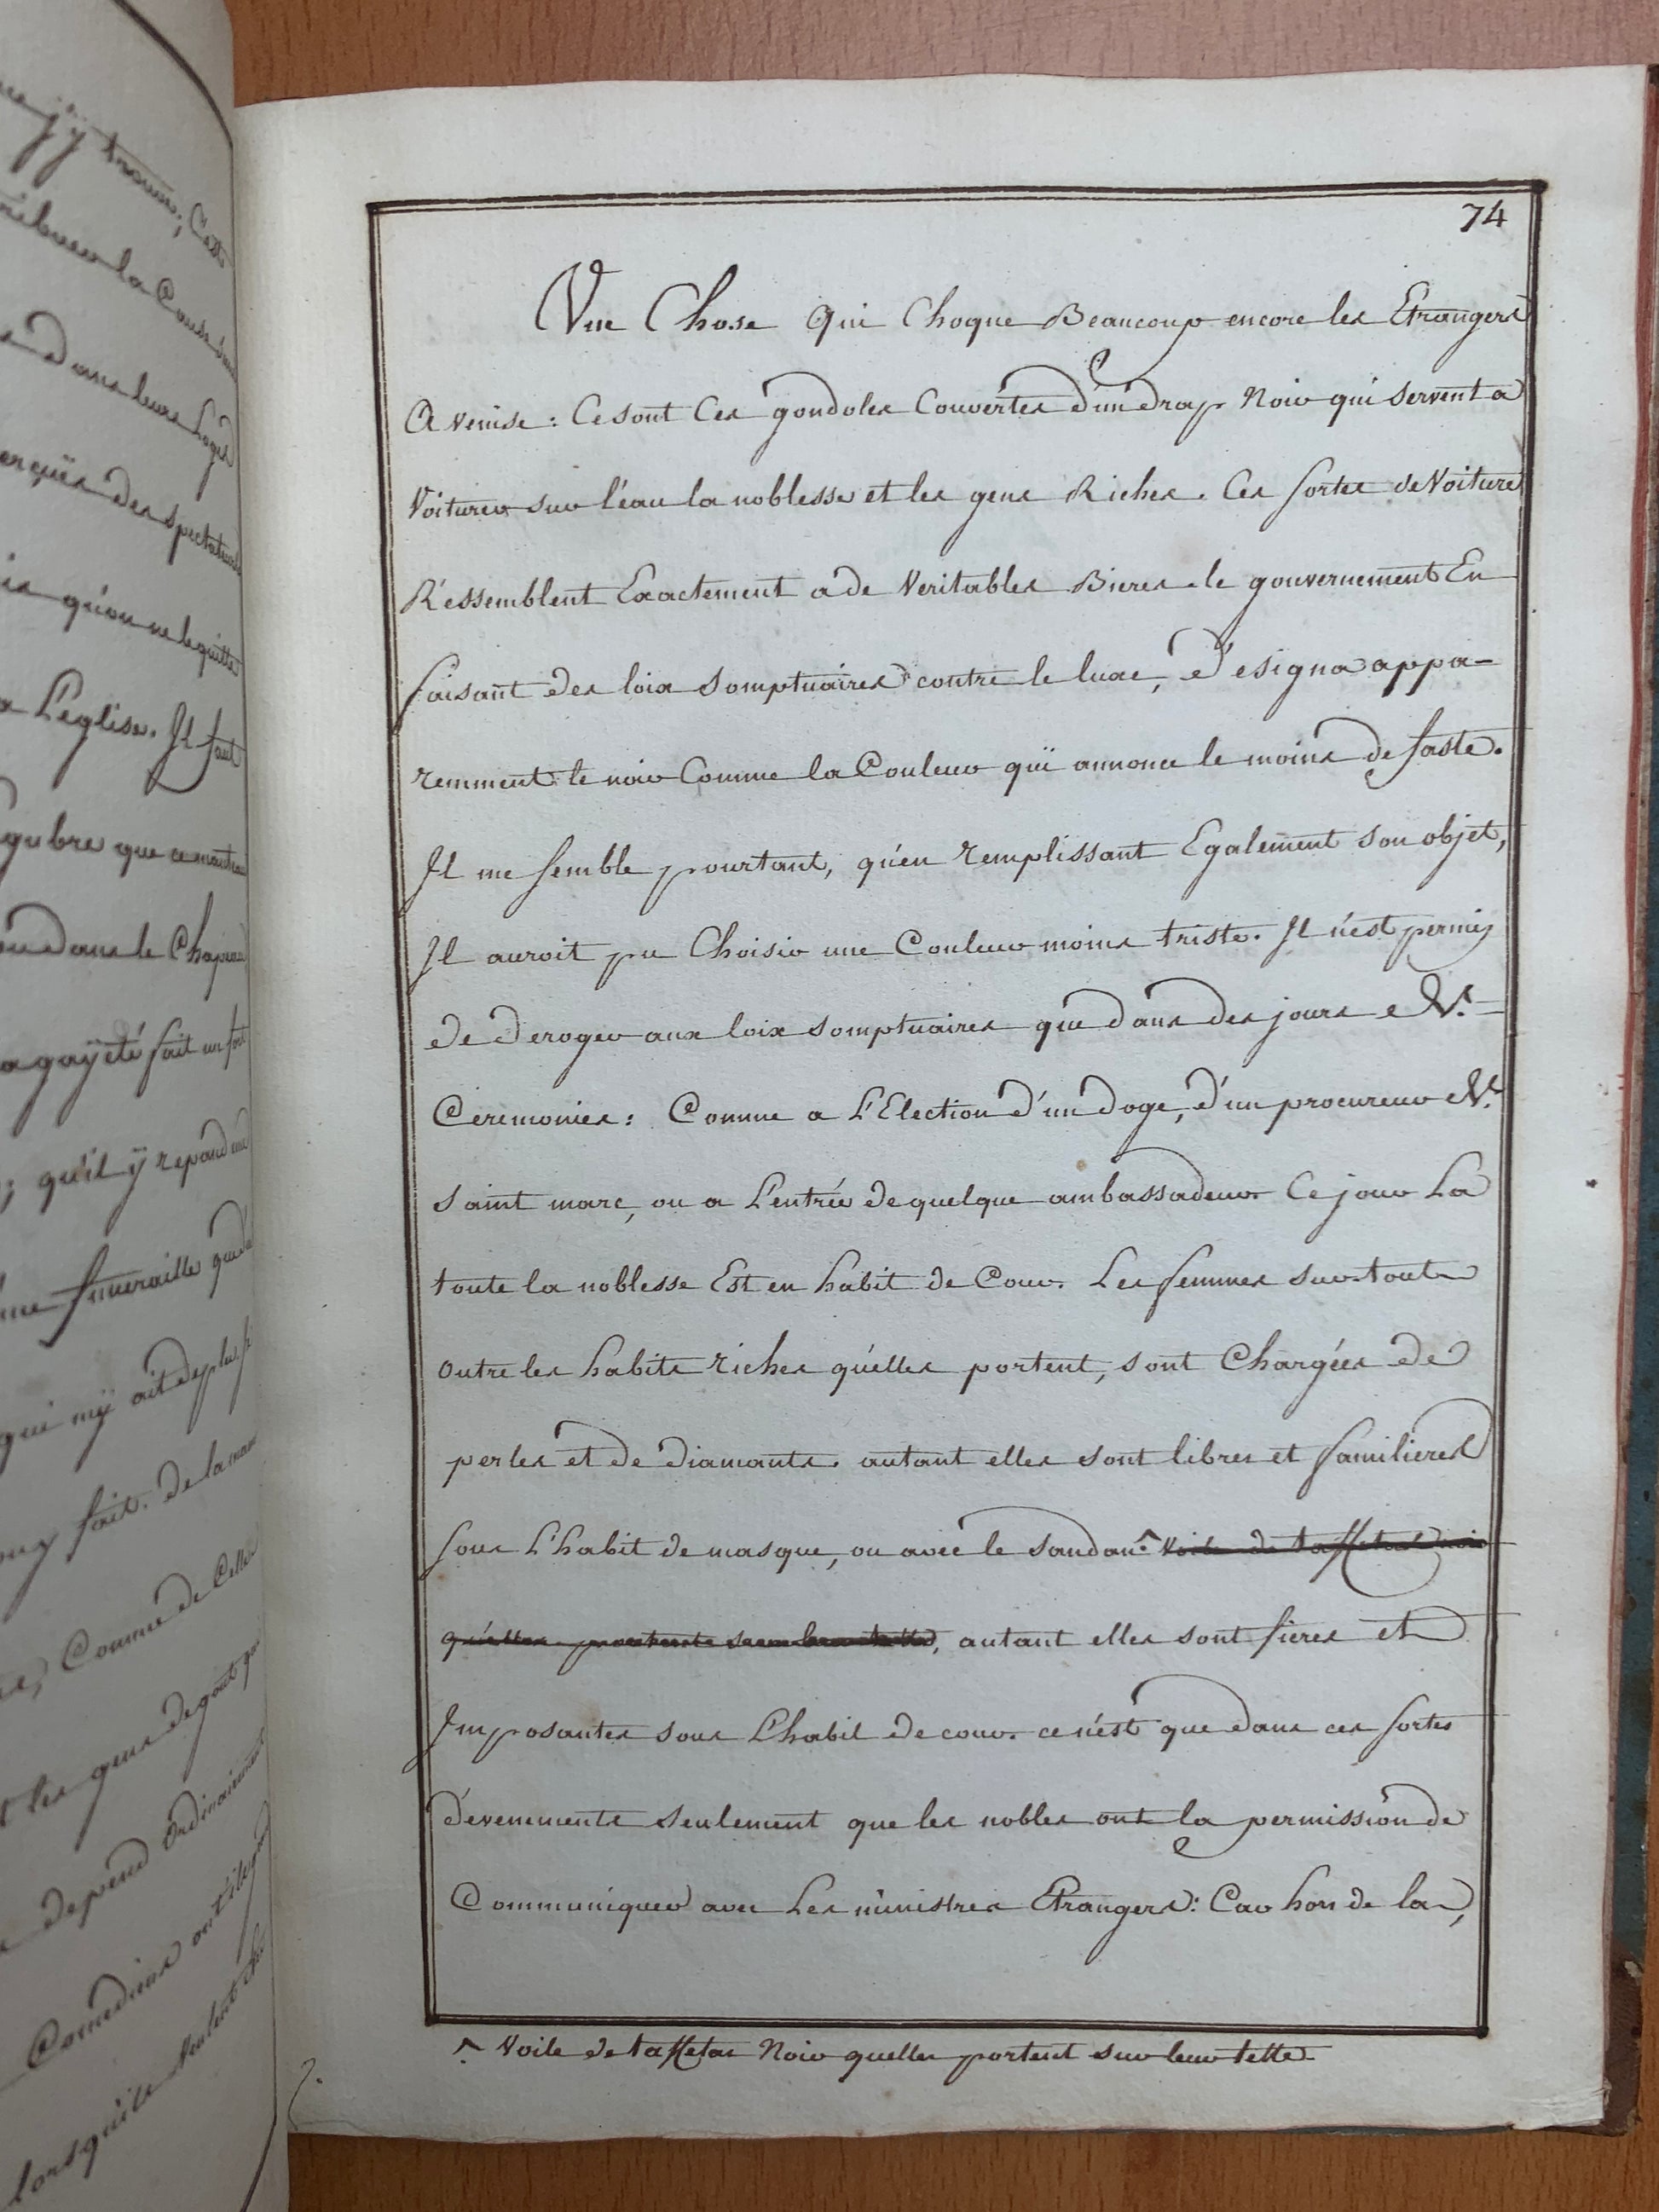 74
Une Chose Qui Choque Beaucoup encore les Etrangers
A venise : Ce sont Ces gondoles Couvertes d'un drap Noir qui servent a
Voiturer sur l'eau la noblesse et les gens Riches. Ces sortes de Voiture
Ressemblent Exactement a de Veritables Bieres. le gouvernement En
faisant des loix somptuaires contre le luxe, designa appa-
remment le noir Comme la Couleur qui annonce le moins de faste.
Il me semble pourtant, qu'en remplissant Egalement son objet,
Il auroit pu Choisir une Couleur moins triste. Il n'est permis
de deroger aux loix somptuaires que dans des jours de
Ceremonies : Comme a L'Election d'un doge, d'un procureur de
saint marc, ou a L'entrée de quelque ambassadeur. Ce jour La
toute la noblesse Est en habit de Cour. Les femmes sur-tout
outre les habits riches qu'elles portent, sont Chargées de
perles et de diamants. autant elles sont libres et familieres
sous L'habit de masque, ou avec le Voile de taffetas noir
qu'elles portent sur leur tette, autant elles sont fieres et
Imposantes sous L'habit de cour. ce n'est que dans ces sortes
d'evenements seulement que les nobles ont la permission de
Communiquer avec Les ministres Etrangers : Car hors de la,
^ Voile de taffetas Noir quelles portent sur leur tette.
jy trouve; Cette
dans leurs loges
des spectateurs
qu'on ne le quitte
L'eglise. Il faut
que ce manteau
dans le Chapeau
gayeté fait un
; qu'il y repand une
funeraille que
qui my ait de plus
fait. de la
Comme de Celles
les gens de gout
depend Ordinairement
Comediens ont
lorsqu'ils veulent